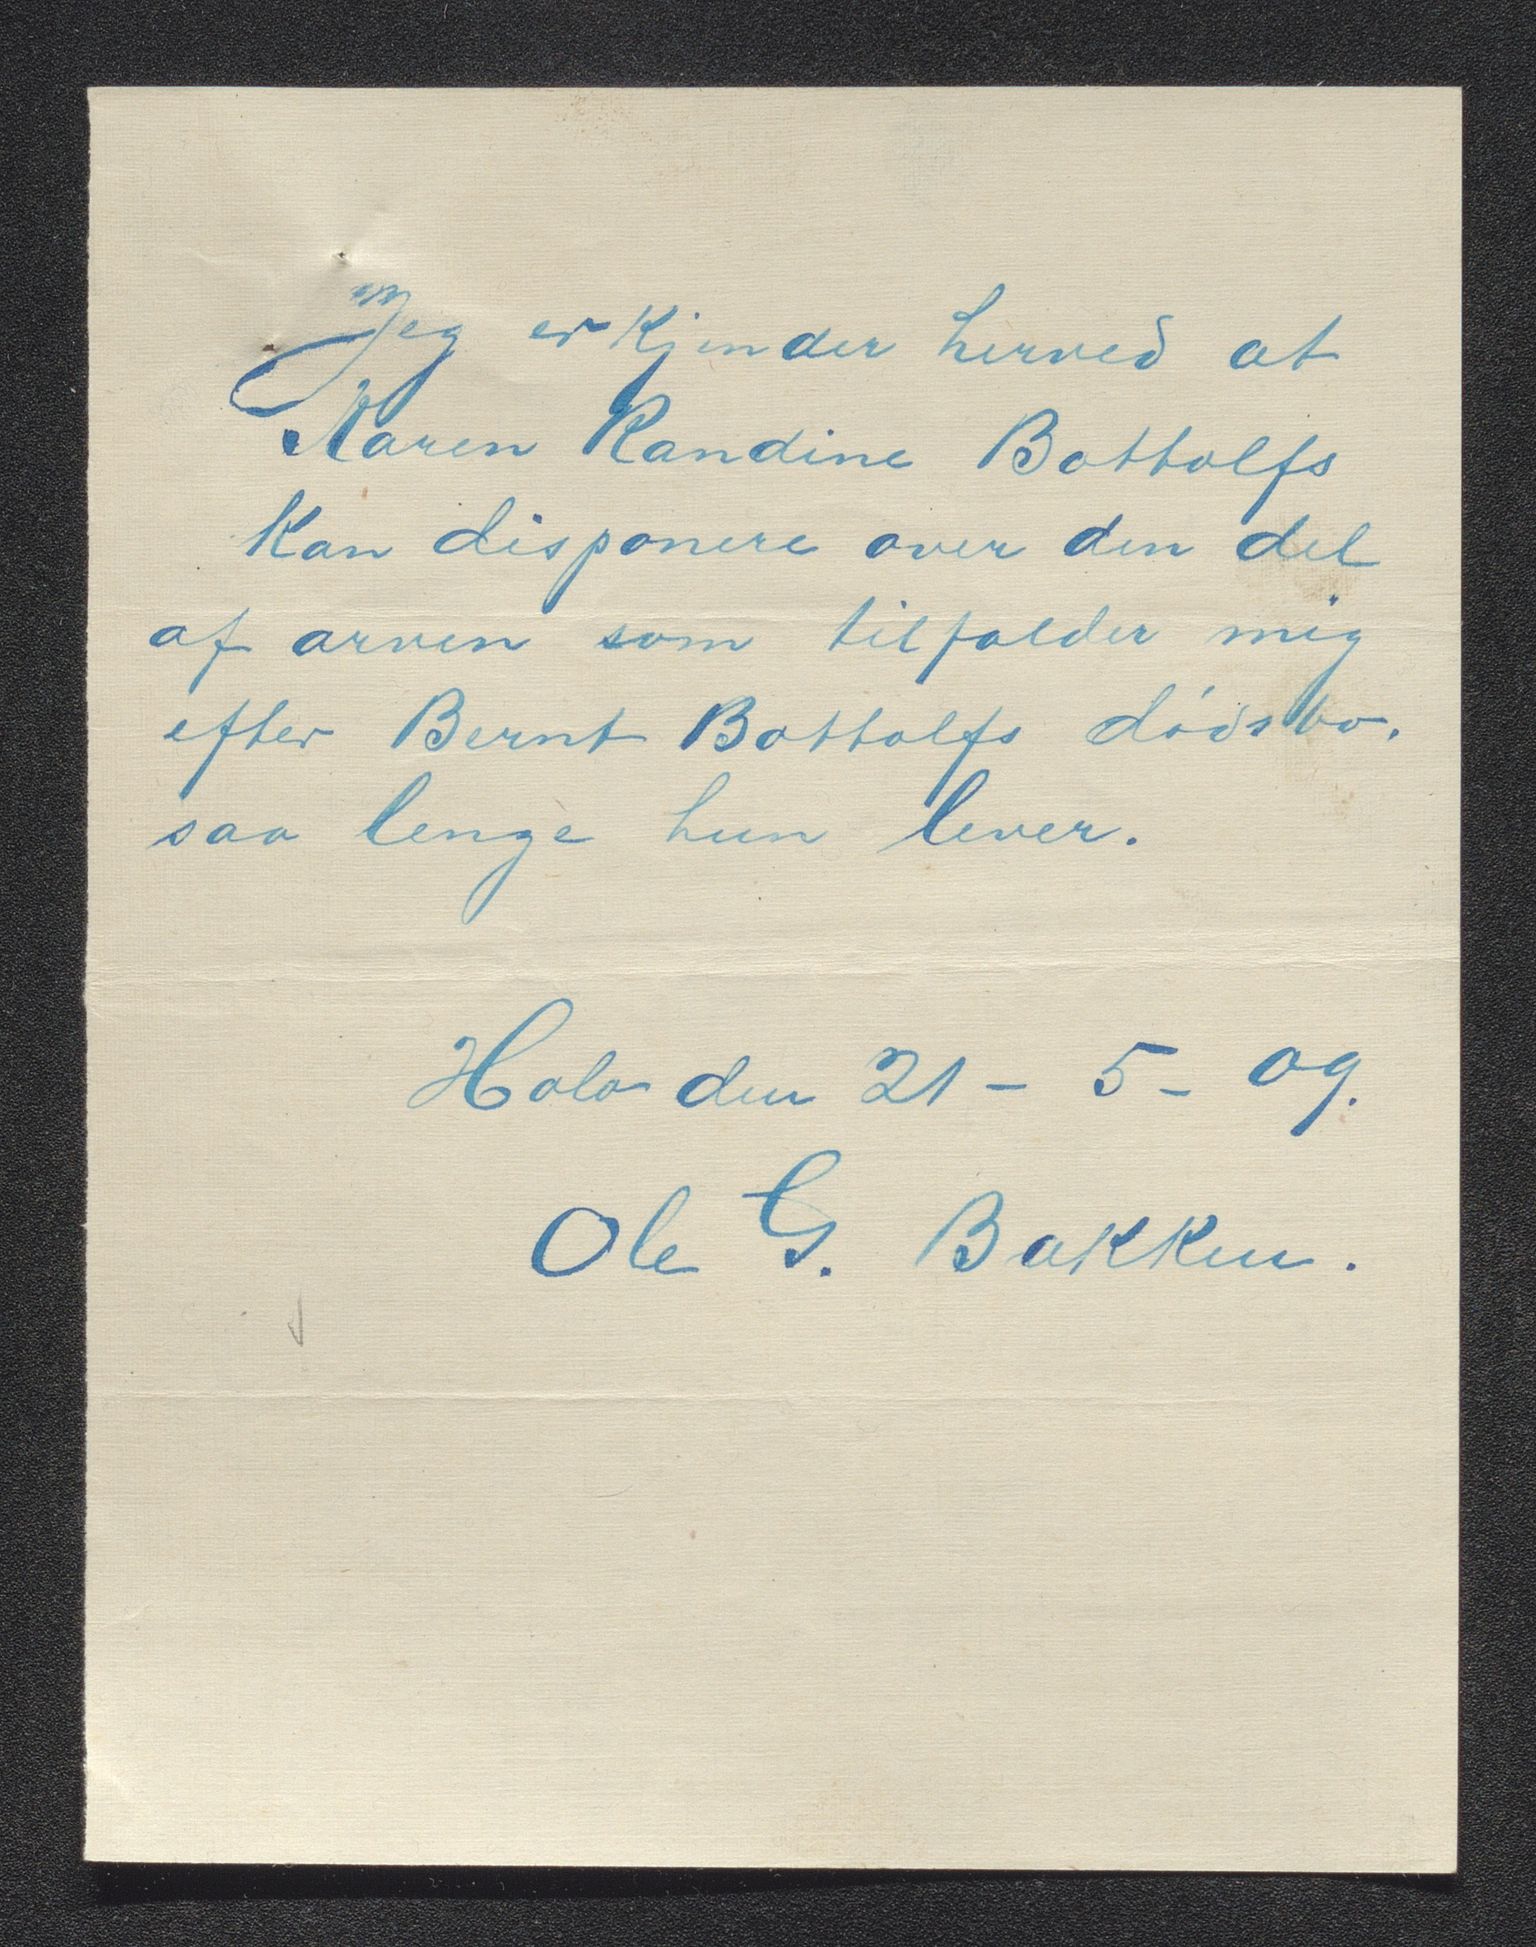 Jeg erkjender herved at
Karen Randine Bottolfs
kan disponere over den del
af arven som tilfalder mig
efter Bernt Bottolfs dødsbo.
saa lenge hun lever.
Hola den 21 - 5 - 09.
Ole G. Bakken.